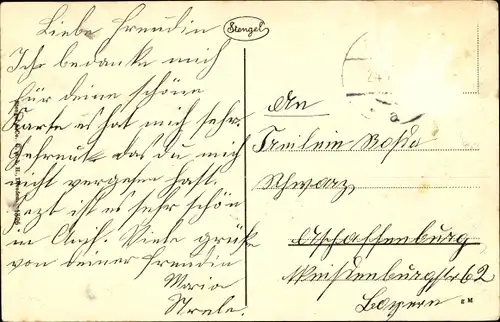 Liebe Freundin
Ich bedanke mich
für deine schöne
Karte es hat mich sehr
gefreut das du mich
nicht vergessen hast.
Jezt ist es sehr schön
in Aufl. Viele grüße
von deiner Freundin
Maria
Strele.
Stengel
24.
a
An
Freilein Rosa
Schwarz
Aschaffenburg
Weißenburgstr 62
Bayern
EM